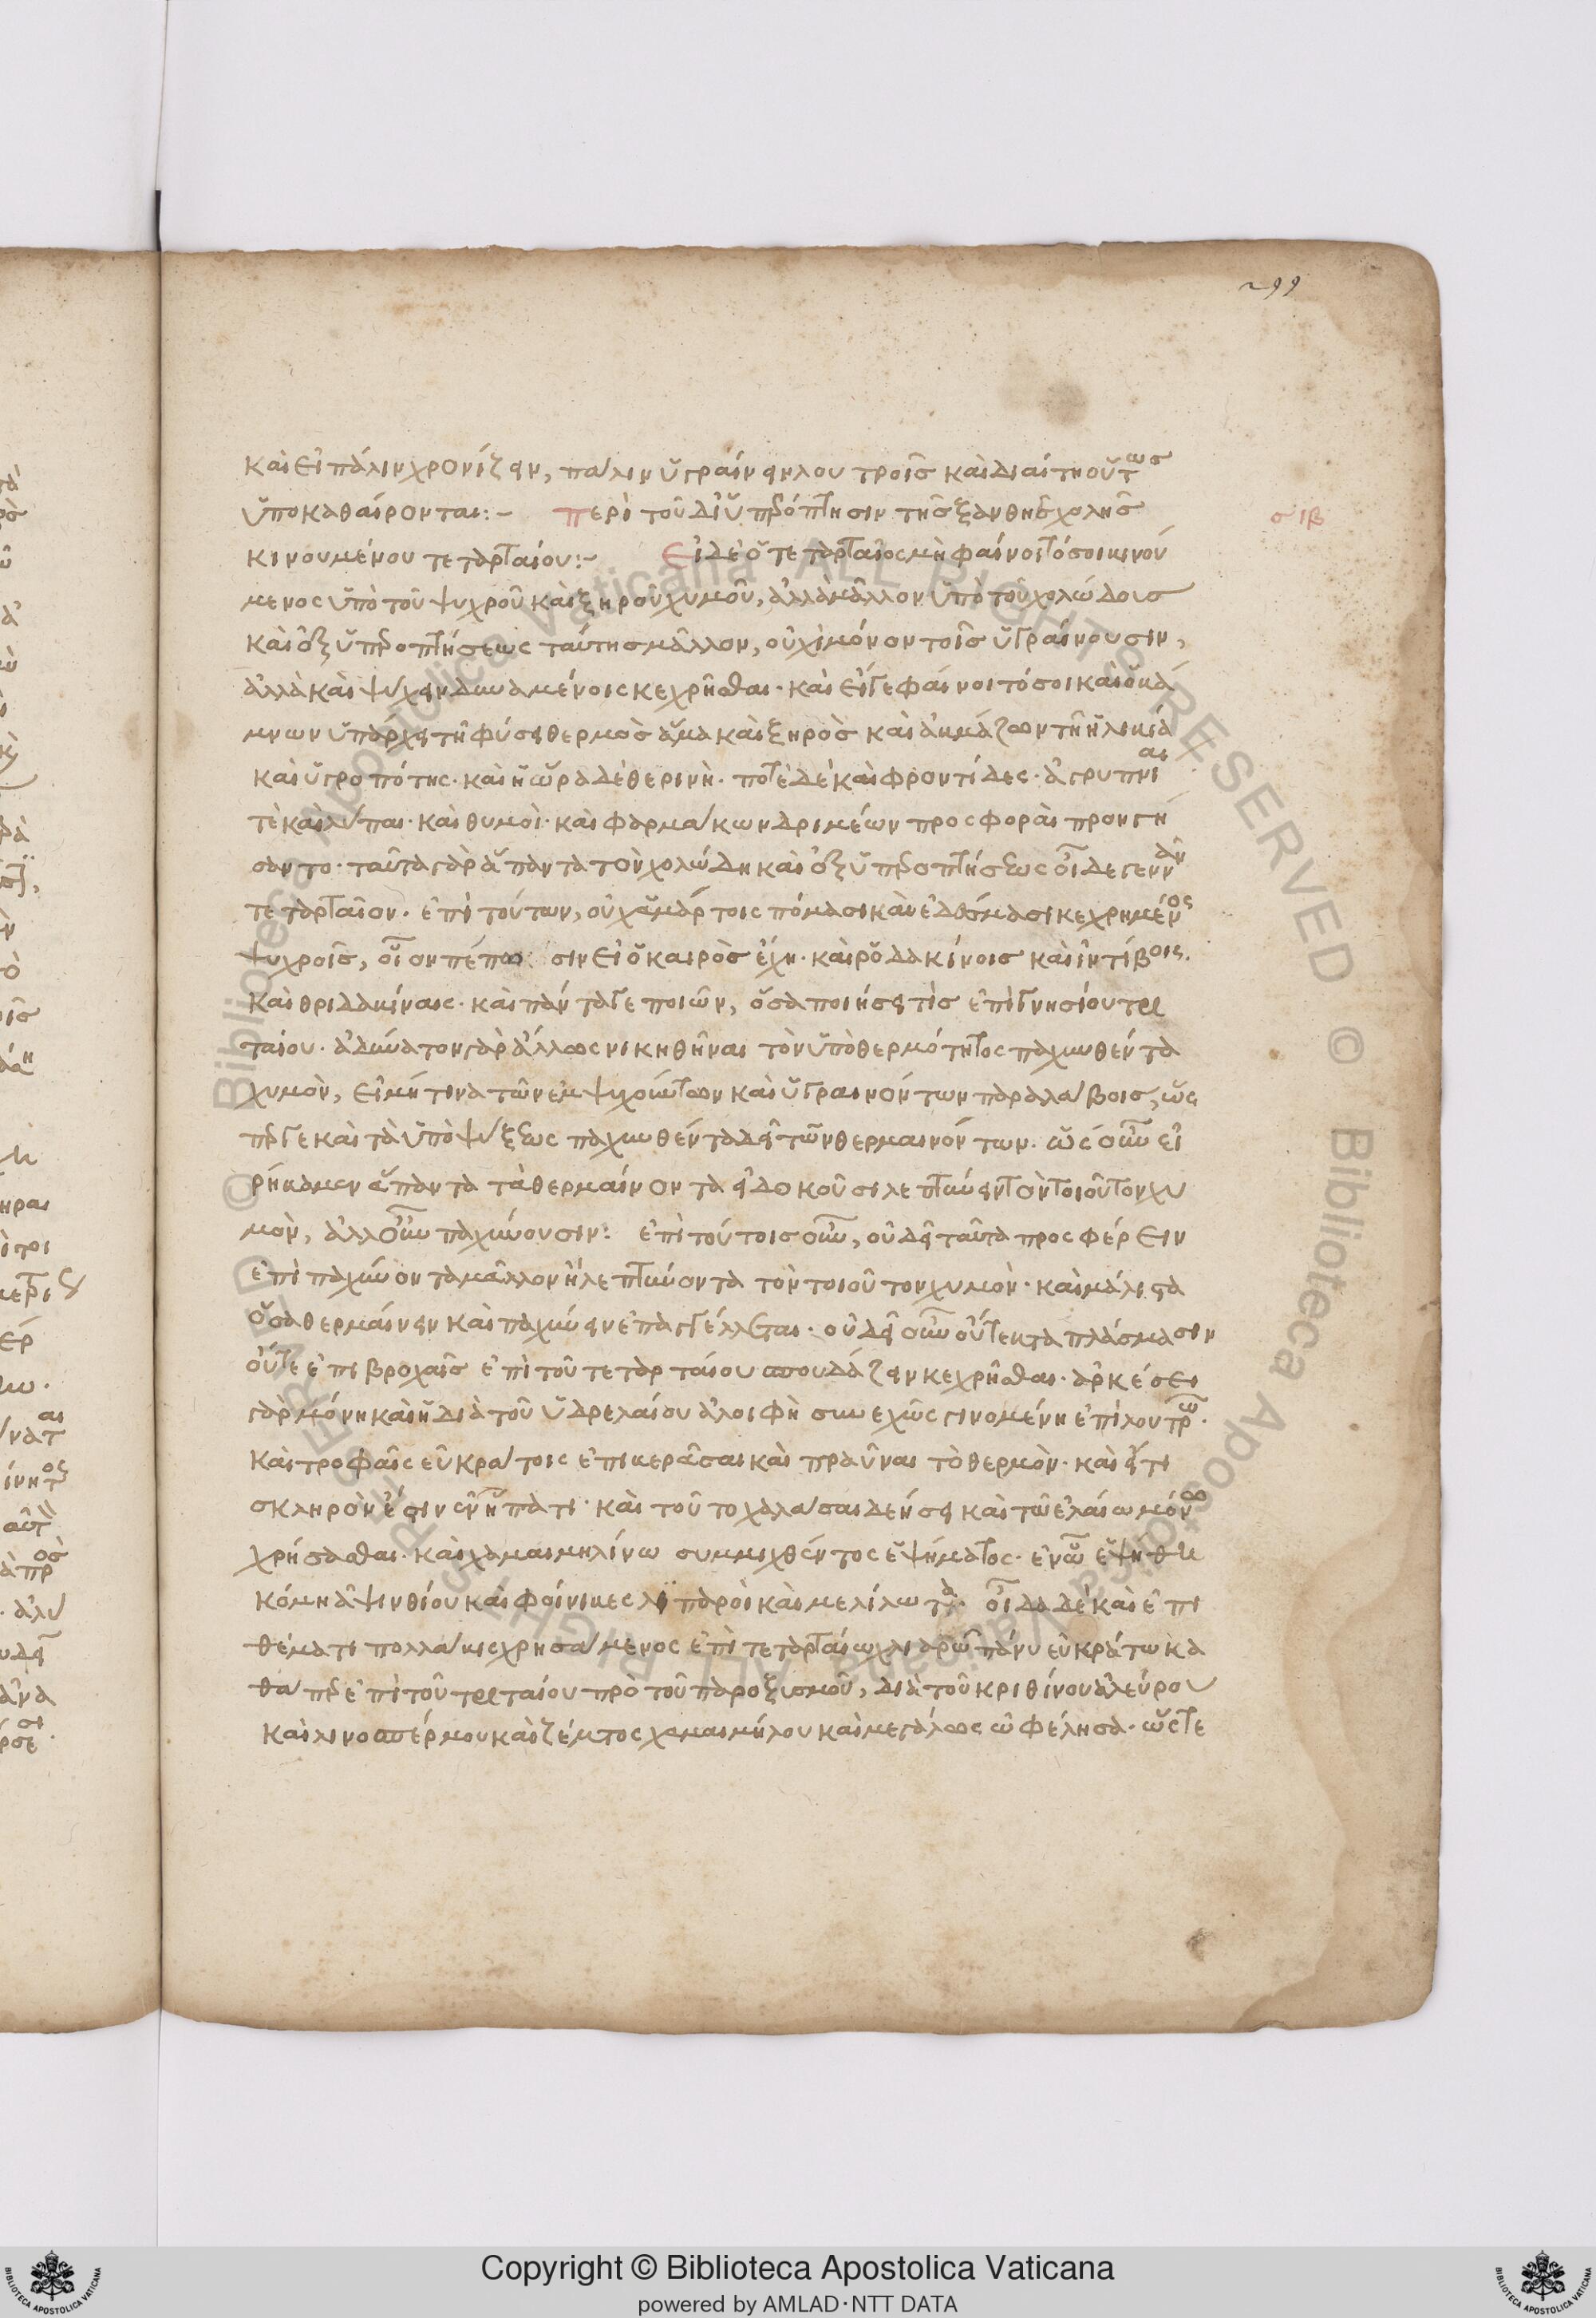 299
καὶ εἰ πάλιν χρονίζειν, πάλιν ὑγραίνειν λουτροῖς καὶ διαίτη οὕτως
ὑποκαθαίρονται:– περὶ τοῦ δι' ὑπερόπτησιν τῆς ξανθῆς χολῆς
σιβ
κινουμένου τεταρταίου:– Εἰ δὲ ὁ τεταρταῖος μὴ φαίνοιτό σοι κινού
μενος ὑπὸ τοῦ ψυχροῦ καὶ ξηροῦ χυμοῦ, ἀλλὰ μᾶλλον ὑπὸ τοῦ χολώδους
καὶ ἐξ ὑπεροπτήσεως ταύτης μᾶλλον, οὐχὶ μόνον τοῖς ὑγραίνουσιν,
ἀλλὰ καὶ ψύχειν δυναμένοις κεχρῆσθαι· καὶ εἴγε φαίνοιτό σοι καὶ ὁ κά
μνων ὑπάρχει τῆ φύσει θερμὸς ἅμα καὶ ξηρὸς καὶ ἀκμάζων τῆ ἡλικία
καὶ ὑγροπότης· καὶ ἡ ὥρα δὲ θερινὴ· ποτὲ δὲ καὶ φροντίδες· ἀγρυπνίαι
τὲ καὶ λύπαι· καὶ θυμοὶ· καὶ φαρμάκων δριμέων προσφοραὶ προηγή
σαντο· ταῦτα γὰρ ἅπαντα τὸν χολώδη καὶ ἐξ ὑπεροπτήσεως οἶδε γεννᾶν
τεταρταῖον· ἐπὶ τούτων, οὐχ ἁμάρτοις πόμασι κἀν ἐδέσμασι κεχρημένος
ψυχροῖς, οἷον πέποσιν εἰ ὁ καιρὸς ἔχη· καὶ ῥοδακίνοις καὶ ἰντίβοις·
καὶ θριδακίναις· καὶ πάντα γε ποιῶν, ὅσα ποιήσει τις ἐπὶ γνησίου τρι
ταίου· ἀδύνατον γὰρ ἄλλως νικηθῆναι τὸν ὑπὸ θερμότητος παχυνθέντα
χυμὸν, εἰ μή τινα τῶν ἐμψυχόντων καὶ ὑγραινόντων παραλάβοις, ὥς
περ γε καὶ τὰ ὑπὸ ψύξεως παχυνθέντα δεῖ τῶν θερμαινόντων· ὡς οὖν εἰ
ρήκαμεν ἅπαντα τὰ θερμαίνοντα εἰ δοκοῦσι λεπτύνειν τὸν τοιοῦτον χυ
μὸν, ἀλλ' οὖν παχύνουσιν: ἐπὶ τούτοις οὖν, οὐ δεῖ ταῦτα προσφέρειν
ἐπιπαχύνοντα μᾶλλον ἢ λεπτύνοντα τὸν τοιοῦτον χυμὸν· καὶ μάλιστα
ὅσα θερμαίνειν καὶ παχύνειν ἐπαγγέλλεται· οὐ δεῖ οὖν οὔτε καταπλάσμασιν
οὔτε ἐπιβροχαῖς ἐπὶ τοῦ τεταρταίου σπουδάζειν κεχρῆσθαι· ἀρκέσει
γὰρ μόνη καὶ ἡ διὰ τοῦ ὑδρελαίου ἀλοιφὴ συνεχῶς γινομένη ἐπὶ λουτρῶ·
καὶ τροφαῖς εὐκράτοις ἐπικερᾶσαι καὶ πραῦναι τὸ θερμὸν· καὶ εἴ τι
σκληρὸν ἐστιν ἐν ἥπατι· καὶ τοῦτο χαλάσαι δεήσει καὶ τῶ ἐλαίω μόνω
χρήσασθαι· καὶ χαμαιμηλίνω συμμιχθέντος ἑψήματος· ἐν ὧ ἑψηθῆ
κόμη ἀψινθίου καὶ φοίνικες λιπαροὶ καὶ μελίλωτα· οἶδα δὲ καὶ ἐπι
θέματι πολλάκις χρησάμενος ἐπὶ τεταρταίω χλιαρῶ πάνυ εὐκράτω κα
θάπερ ἐπὶ τοῦ τριταίου πρὸ τοῦ παροξυσμοῦ, διὰ τοῦ κριθίνου ἀλεύρου
καὶ λινοσπέρμου καὶ ζέματος χαμαιμήλου καὶ μεγάλως ὠφέλησα· ὥστε
Copyright © Biblioteca Apostolica Vaticana
powered by AMLAD·NTT DATA